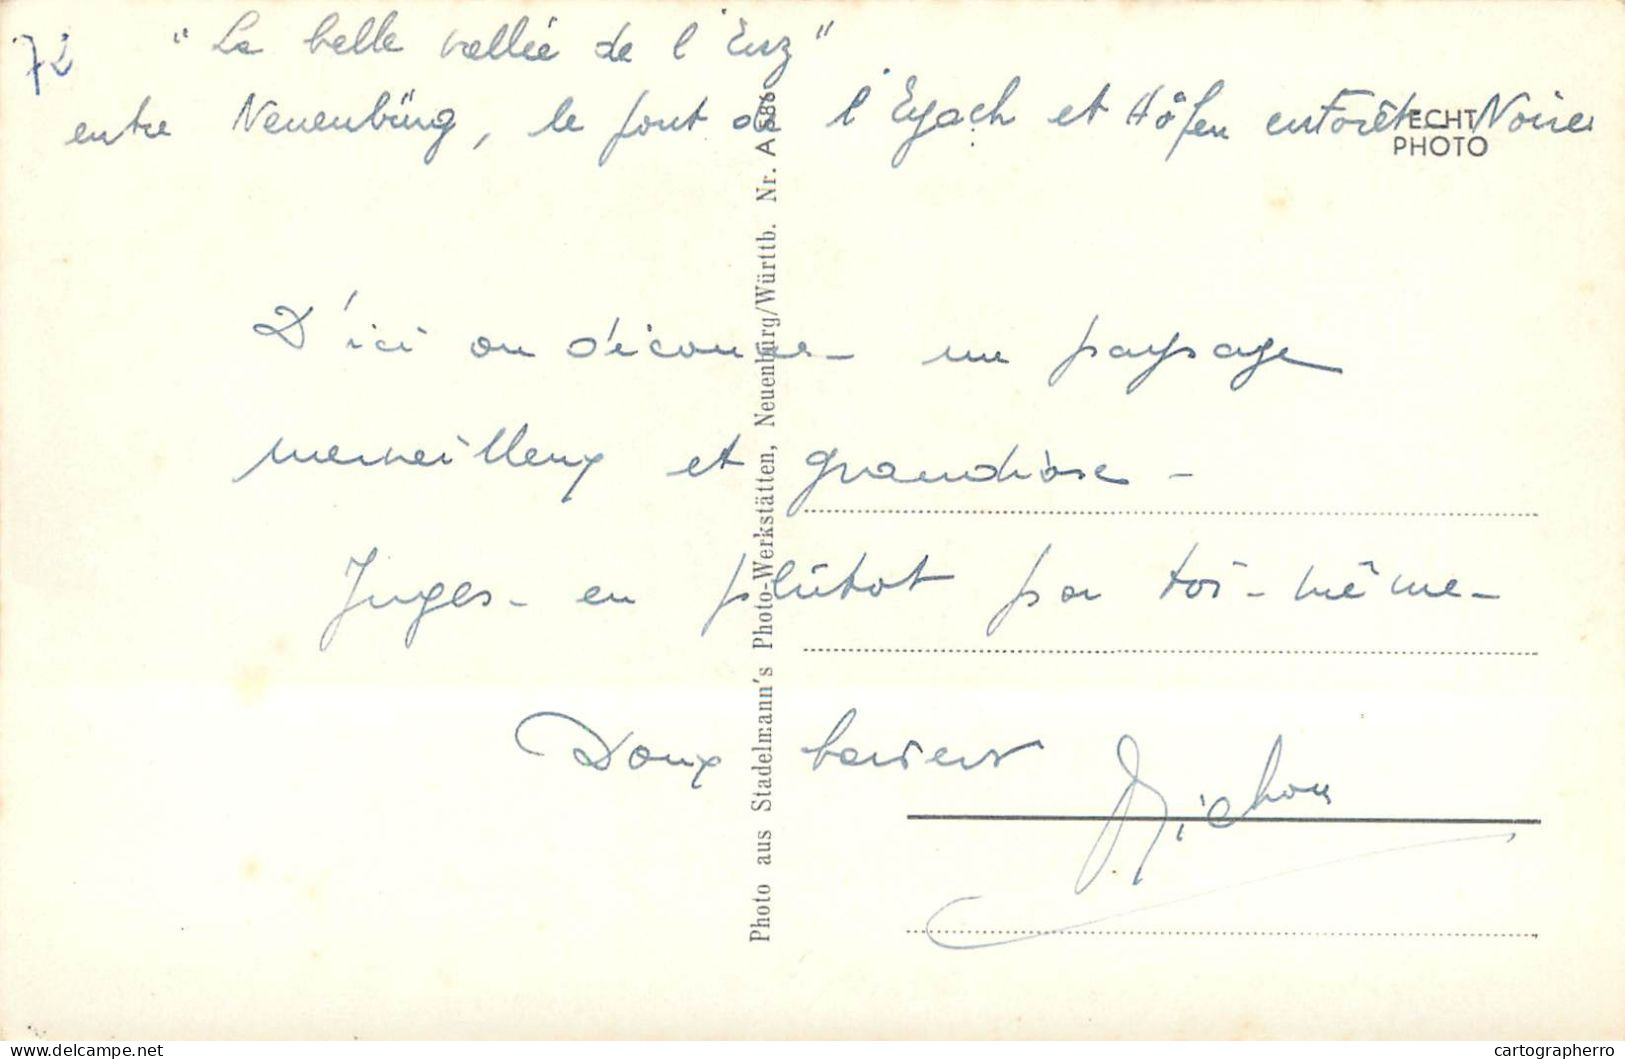 72
"La belle vallée de l'Enz"
entre Neuenbürg, le pont de l'Eyach et Höfen en Forêt-Noire
ECHT
PHOTO
D'ici on découvre un paysage
merveilleux et grandiose -
Juges-en plûtot par toi-même -
Doux baisers
Michou
Photo aus Stadelmann's Photo-Werkstätten, Neuenbürg/Württb. Nr. A
cartographerro on Delcampe.net